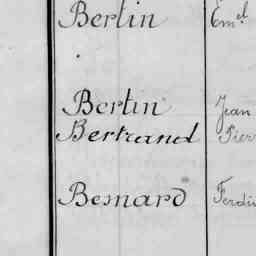 Bertin Em.el
Bertin Jean
Bertrand Pier
Besnard Ferdin